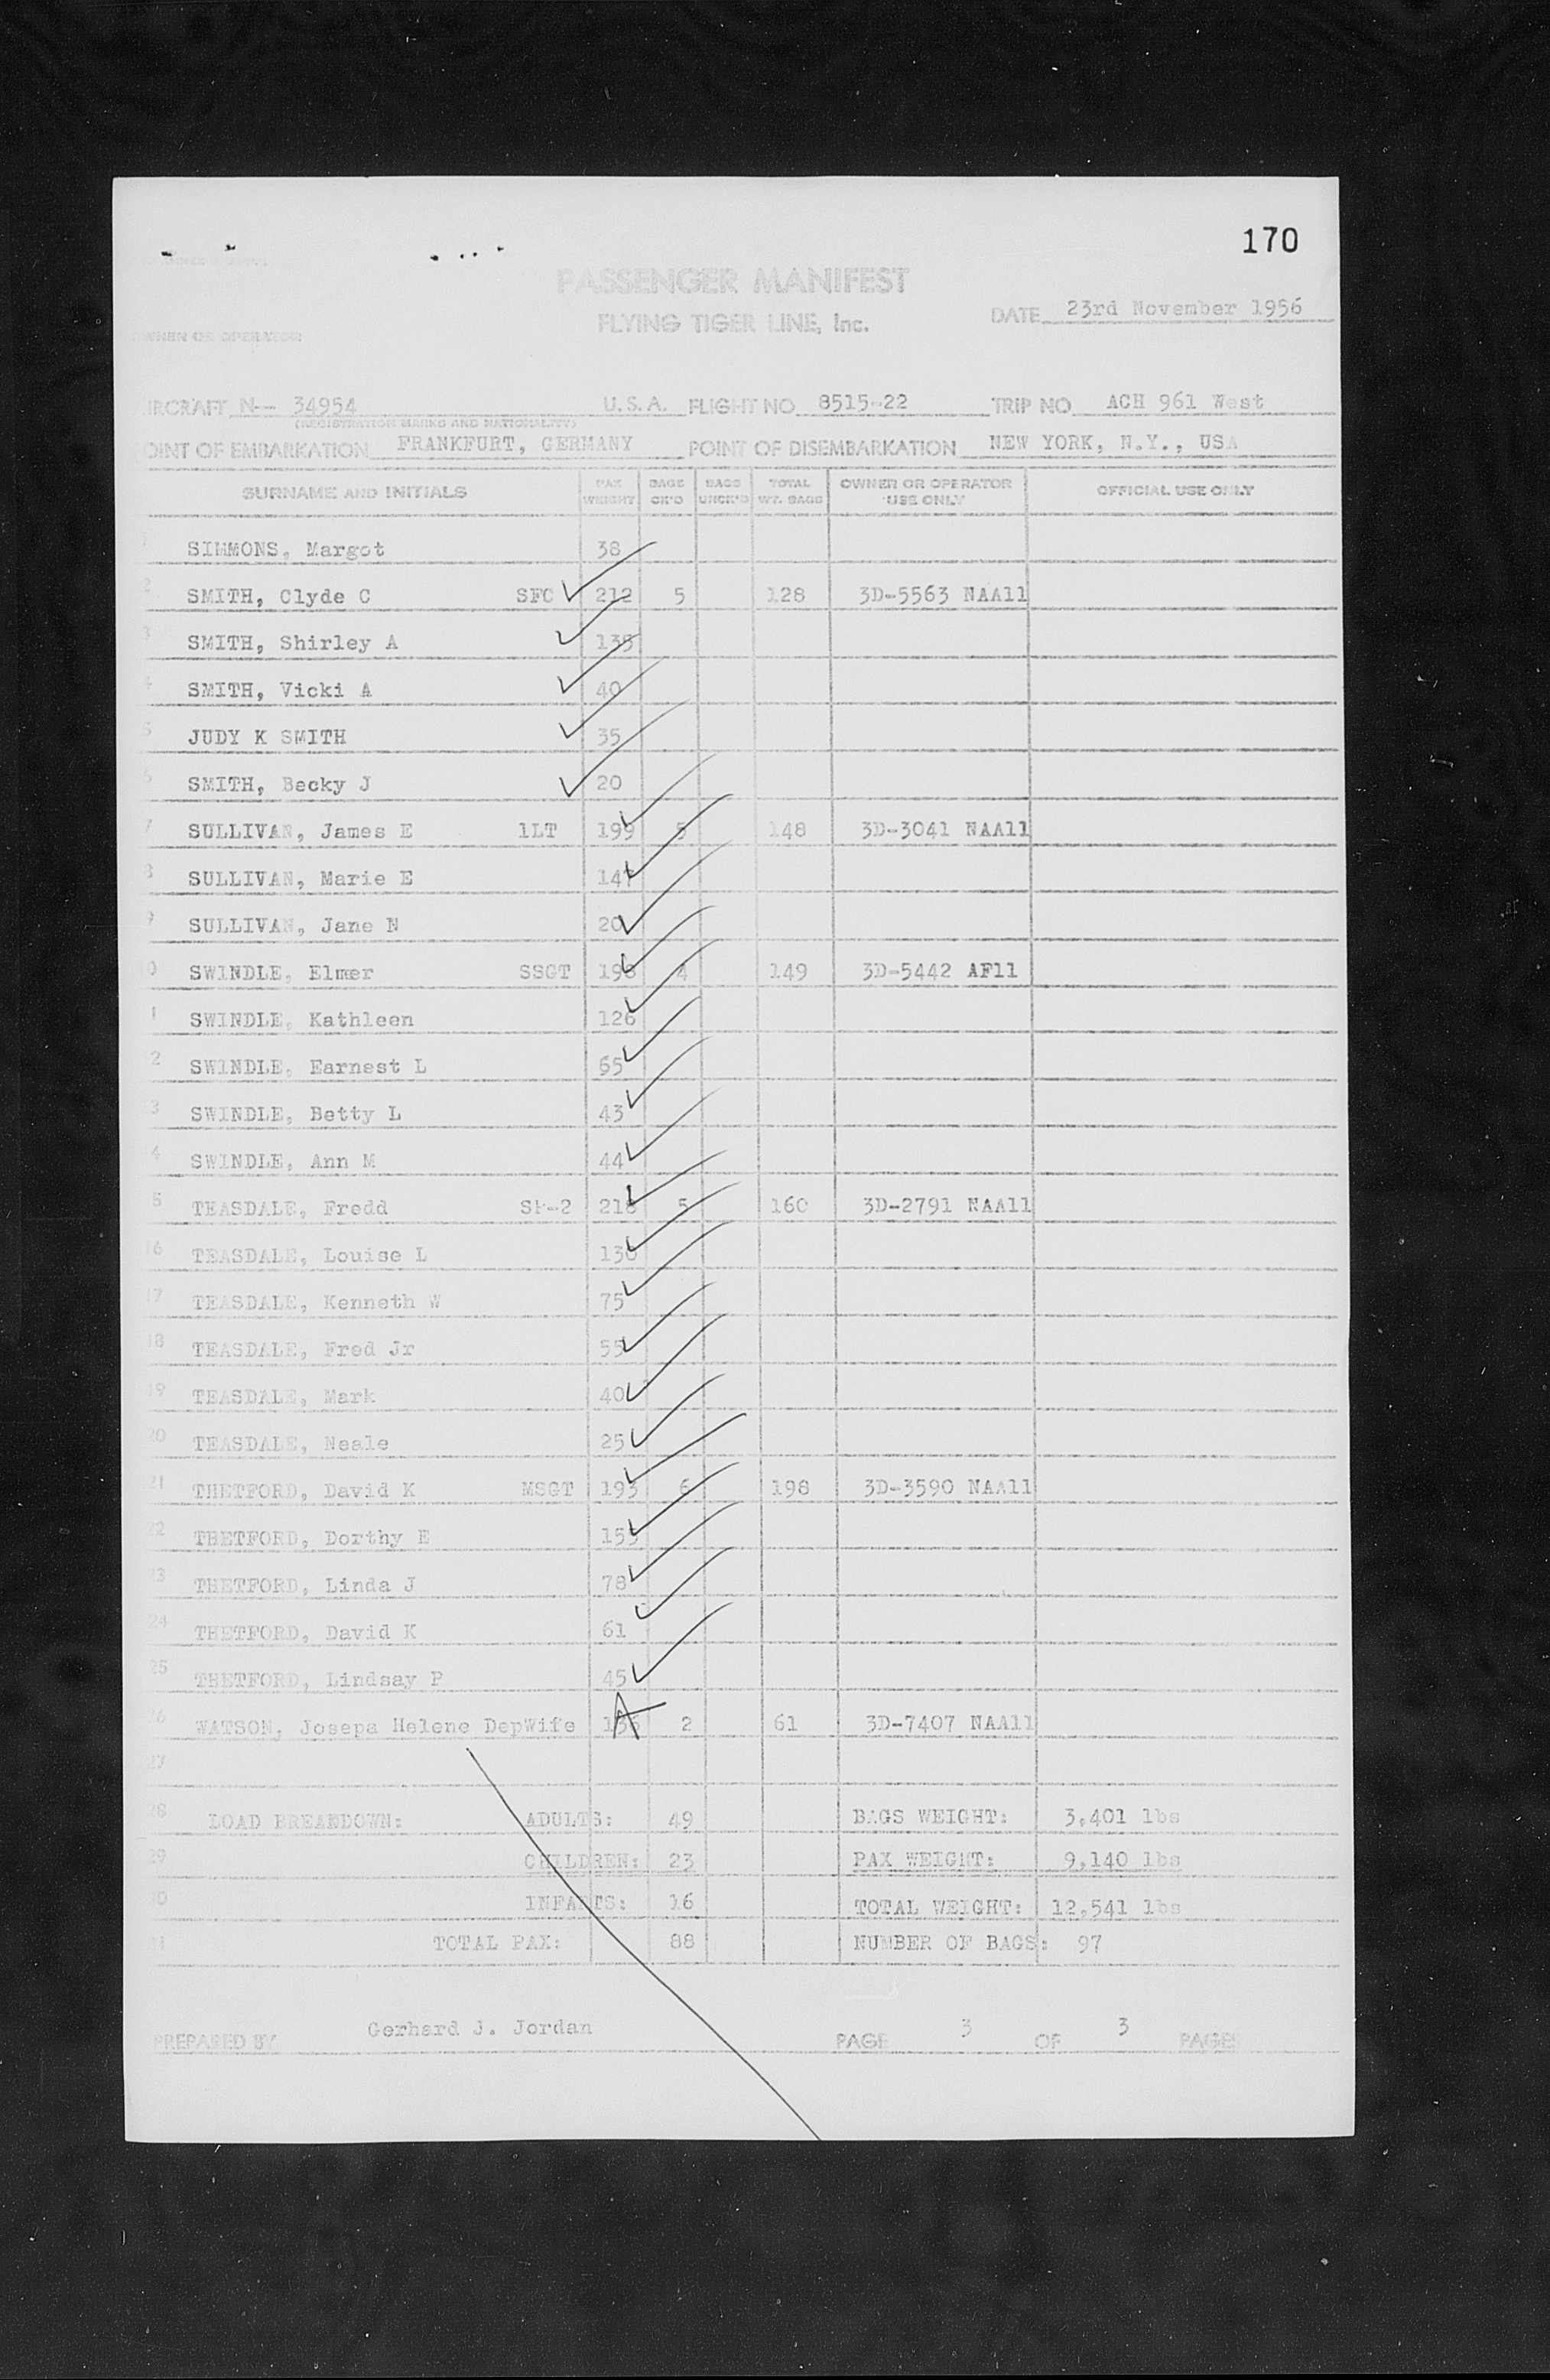 170
PASSENGER MANIFEST
FLYING TIGER LINE, Inc.
DATE 23rd November 1956
WNER OR OPERATOR
IRCRAFT N-- 34954 U.S.A. FLIGHT NO 8515-22 TRIP NO ACH 961 West
(REGISTRATION MARKS AND NATIONALITY)
OINT OF EMBARKATION FRANKFURT, GERMANY POINT OF DISEMBARKATION NEW YORK, N.Y., USA
SURNAME AND INITIALS PAX WEIGHT BAGS CK'D BAGS UNCK'D TOTAL WT. BAGS OWNER OR OPERATOR USE ONLY OFFICIAL USE ONLY
SIMMONS, Margot 38
2 SMITH, Clyde C SFC 212 5 128 3D-5563 NAAll
3 SMITH, Shirley A 135
4 SMITH, Vicki A 40
5 JUDY K SMITH 35
6 SMITH, Becky J 20
7 SULLIVAN, James E 1LT 199 5 148 3D-3041 NAAll
8 SULLIVAN, Marie E 147
9 SULLIVAN, Jane N 20
0 SWINDLE, Elmer SSGT 198 4 149 3D-5442 AFll
1 SWINDLE, Kathleen 126
2 SWINDLE, Earnest L 65
3 SWINDLE, Betty L 43
4 SWINDLE, Ann M 44
5 TEASDALE, Fredd SP-2 218 5 160 3D-2791 NAAll
16 TEASDALE, Louise L 130
17 TEASDALE, Kenneth W 75
18 TEASDALE, Fred Jr 55
19 TEASDALE, Mark 40
20 TEASDALE, Neale 25
21 THETFORD, David K MSGT 193 6 198 3D-3590 NAAll
22 THETFORD, Dorthy E 155
23 THETFORD, Linda J 78
24 THETFORD, David K 61
25 THETFORD, Lindsay P 45
26 WATSON, Josepa Helene DepWife 136 2 61 3D-7407 NAAll
27
28 LOAD BREAKDOWN: ADULTS: 49 BAGS WEIGHT: 3,401 lbs
29 CHILDREN: 23 PAX WEIGHT: 9,140 lbs
30 INFANTS: 16 TOTAL WEIGHT: 12,541 lbs
31 TOTAL PAX: 88 NUMBER OF BAGS: 97
PREPARED BY Gerhard J. Jordan PAGE 3 OF 3 PAGES